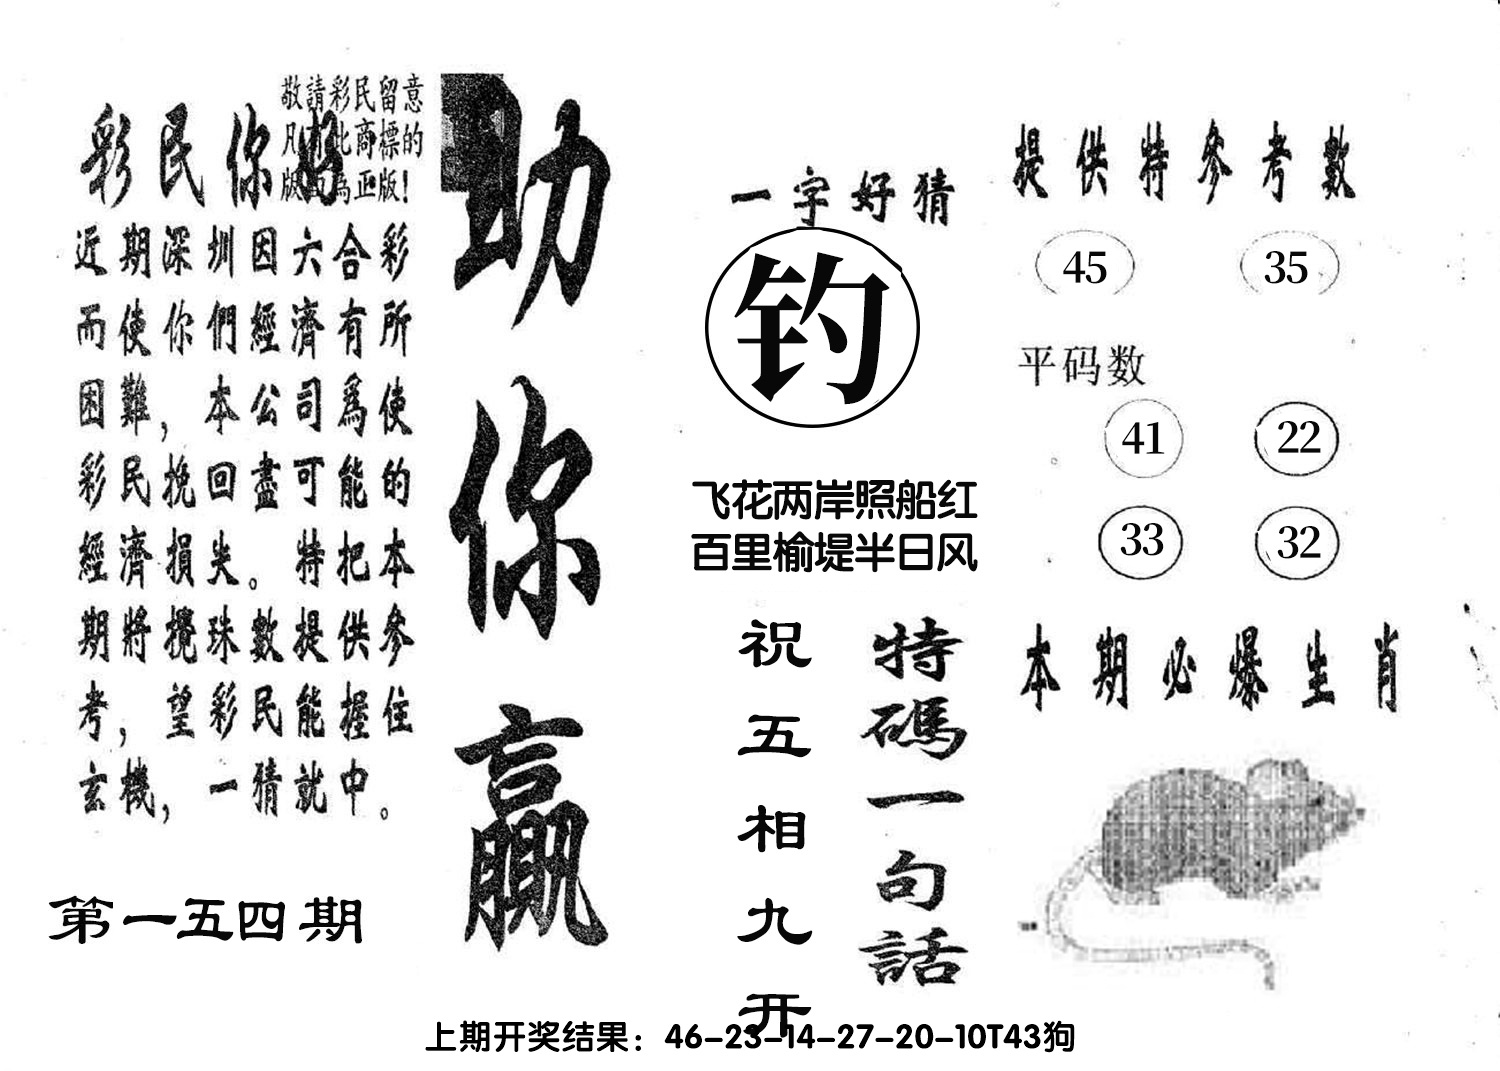 敬請彩民留意
凡有此商標的
版面為正版！
彩民你好
近期深圳因六合彩
而使你們經濟有所
困難，本公司爲使
彩民挽回盡可能的
經濟損失。特把本
期將攪珠數提供參
考，望彩民能握住
玄機，一猜就中。
第一五四期
助你贏
一字好猜
钓
飞花两岸照船红
百里榆堤半日风
特碼一句話
祝五相九开
提供特參考數
45 35
平码数
41 22
33 32
本期必爆生肖
上期开奖结果：46-23-14-27-20-10T43狗